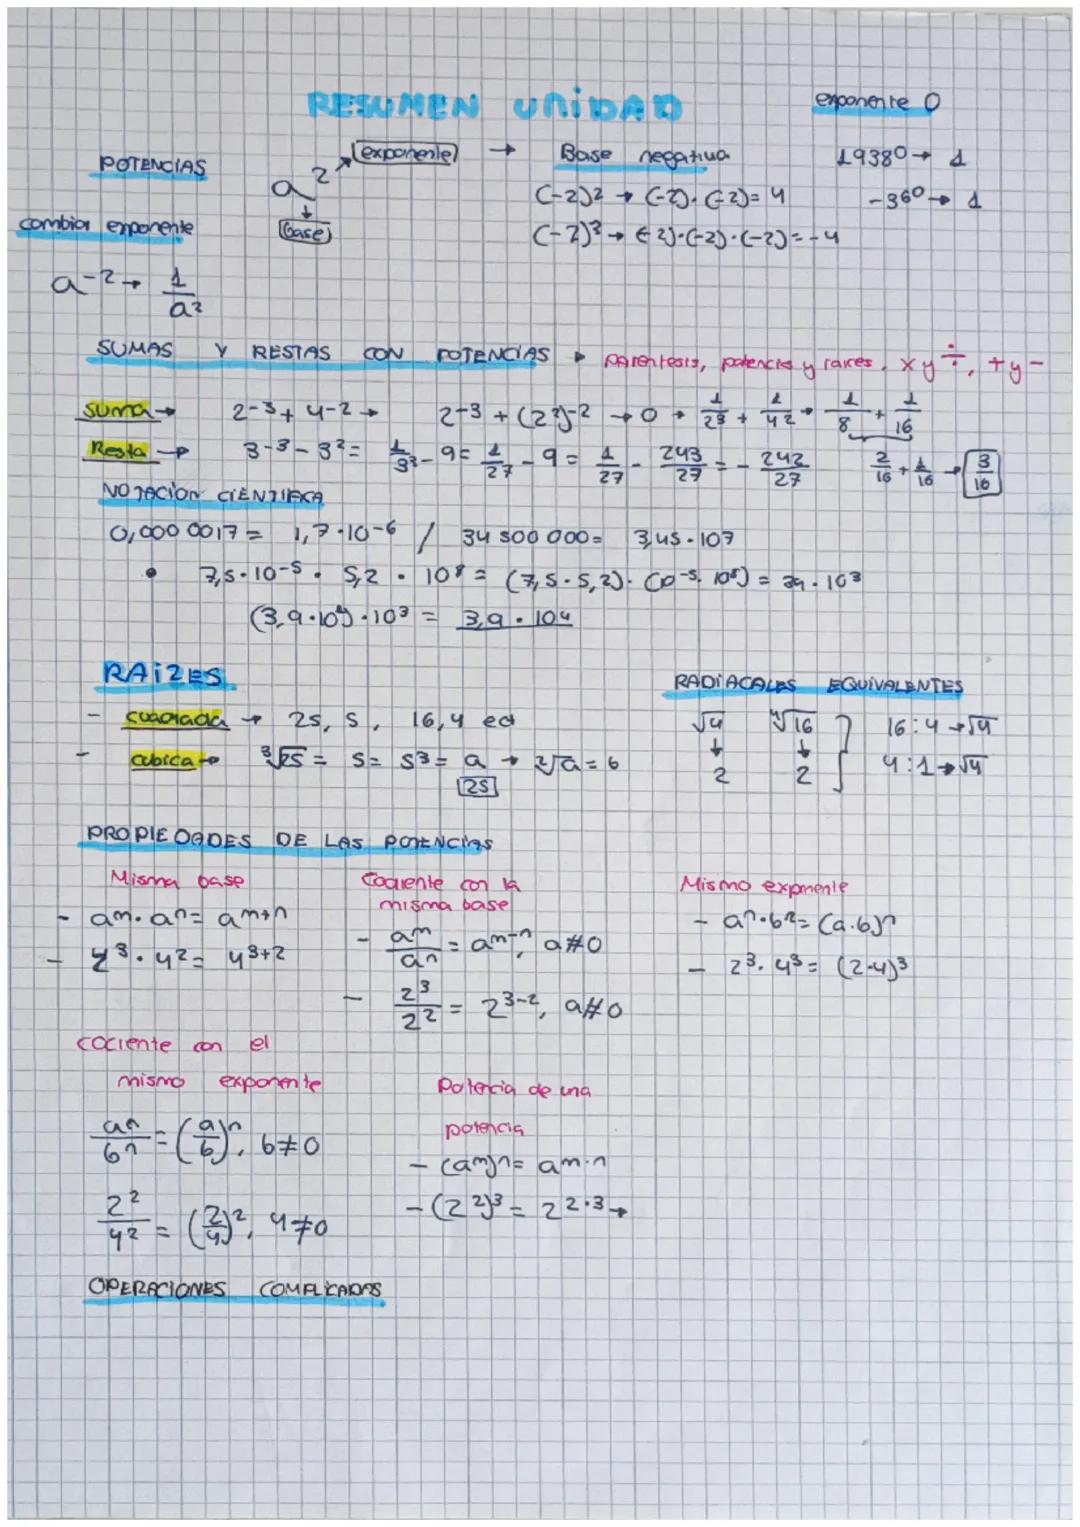 RESUMEN UNIDAD
exponente 0
POTENCIAS
a² exponente → Base negativa
base
19380 → 1
(-2)² → (-2)·(-2)=4
-36⁰ → 1
cambiar exponente
(-2)³ → (-2)·(-2)·(-2)=-4
a⁻² → 1/a²
SUMAS Y RESTAS CON POTENCIAS → parentesis, potencias y raices, x y ÷, + y -
Suma → 2⁻³ + 4⁻² → 2⁻³ + (2²)⁻² → 0 → 1/2³ + 1/4² → 1/8 + 1/16
Resta → 3⁻³ - 3² = 1/3³ - 9 = 1/27 - 9 = 1/27 - 243/27 = - 242/27
2/16 + 1/16 → 3/16
NOTACION CIENTIFICA
0,000 0017 = 1,7·10⁻⁶ / 34 500 000 = 3,45·10⁷
• 7,5·10⁻⁵ · 5,2 · 10⁸ = (7,5·5,2)·(10⁻⁵·10⁸) = 39·10³
(3,9·10¹)·10³ = 3,9·10⁴
RAIZES
RADIACALES EQUIVALENTES
- cuadrada → 25, 5, 16, 4 ect
√4 ⁴√16 } 16:4 → √4
- cubica → ³√25 = 5 = 5³ = a → ²√a = 6
↓ ↓ 4:1 → √4
25
2 2
PROPIEDADES DE LAS POTENCIAS
Misma base
- aᵐ·aⁿ = aᵐ⁺ⁿ
- 4³·4² = 4³⁺²
Cociente con la
misma base
- aᵐ/aⁿ = aᵐ⁻ⁿ, a#0
- 2³/2² = 2³⁻², a#0
Mismo exponente
- aⁿ·bⁿ = (a·b)ⁿ
- 2³·4³ = (2·4)³
cociente con el
mismo exponente
aⁿ/bⁿ = (a/b)ⁿ, b≠0
2²/4² = (2/4)², 4≠0
Potencia de una
potencia
- (aᵐ)ⁿ = aᵐ·ⁿ
- (2²)³ = 2²·³ →
OPERACIONES COMPLICADAS